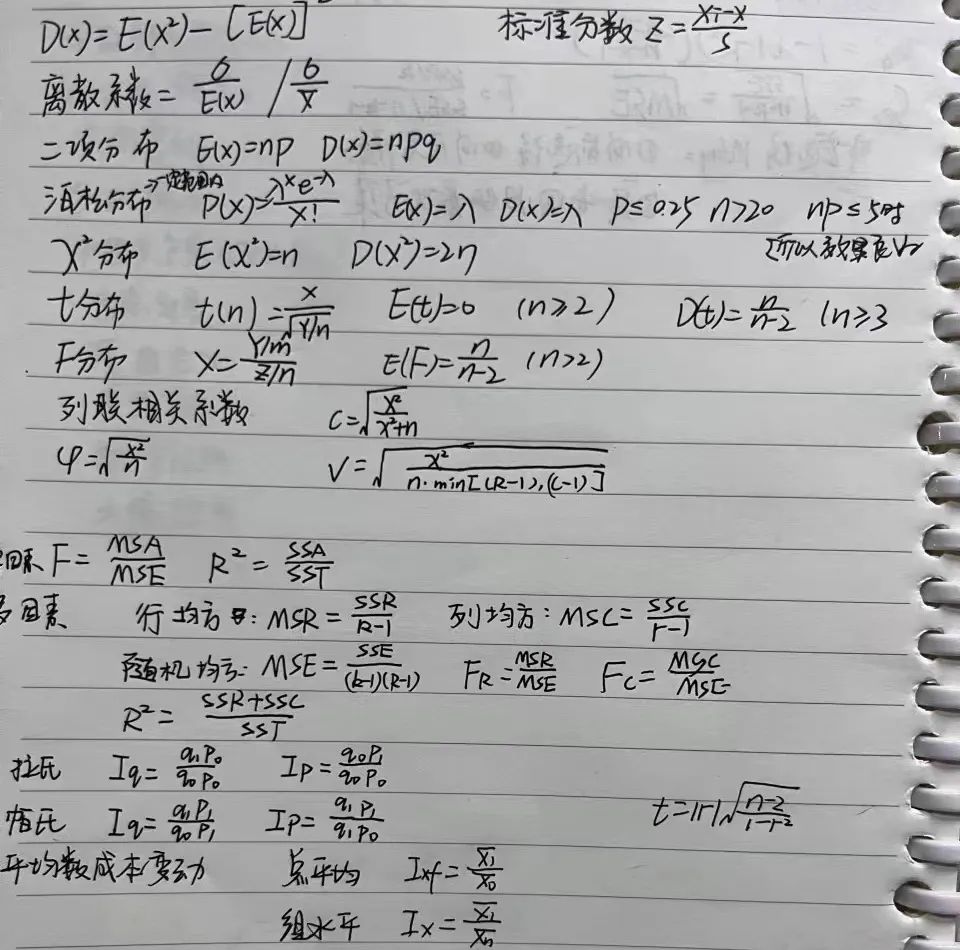 D(x)=E(x²)-[E(x)]² 标准分数 Z=(xi-x)/s
离散系数=σ/E(x) /σ/x̄
二项分布 E(x)=np D(x)=npq
泊松分布 P(x)=λˣe^-λ/x! E(x)=λ D(x)=λ P≤0.25 n>20 np≤5时
χ²分布 E(χ²)=n D(χ²)=2n
t分布 t(n)=x/√(Y/n) E(t)=0 (n≥2) D(t)=n/(n-2) (n≥3
F分布 X=(Y/m)/(Z/n) E(F)=n/(n-2) (n>2)
列联相关系数 C=√(χ²/(χ²+n))
φ=√(χ²/n) V=√(χ²/(n·min[(R-1),(C-1)]))
因素 F=MSA/MSE R²=SSA/SST
因素 行均方: MSR=SSR/(k-1) 列均方: MSC=SSC/(r-1)
随机均方: MSE=SSE/((k-1)(R-1)) FR=MSR/MSE FC=MSC/MSE
R²=(SSR+SSC)/SST
拉氏 Iq=q₁p₀/q₀p₀ Ip=q₀p₁/q₀p₀
帕氏 Iq=q₁p₁/q₀p₁ Ip=q₁p₁/q₁p₀ t=|r|√((n-2)/(1-r²))
平均数成本变动 总平均 Ixf=x̄₁/x̄₀
组水平 Ix=x̄₁/x̄n